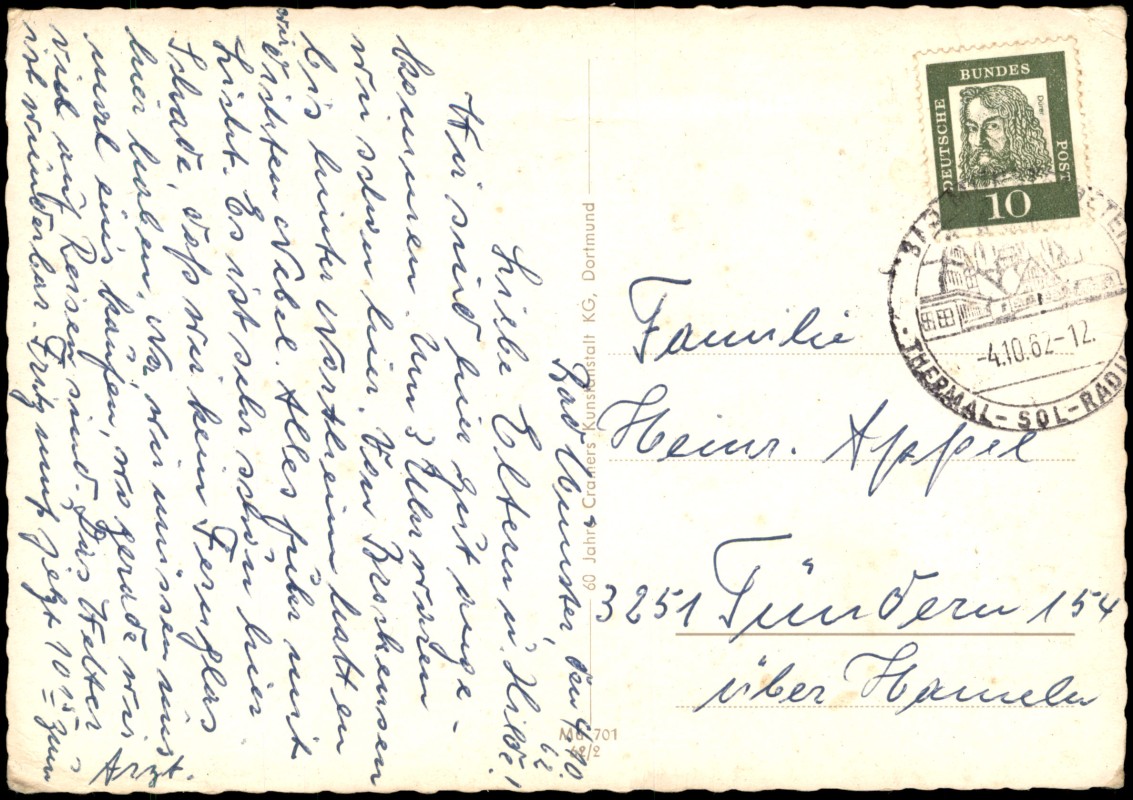 Bad Münster, den 4.10.
62.
Liebe Eltern u. Hilde!
Wir sind hier gut ange-
kommen. Um 3 Uhr waren
wir schon hier. Von Brockensen
bis hinter Northeim hatten
wir
dichten Nebel. Alles fuhr mit
Licht. Es ist sehr schön hier
Schade, daß wir kein Fernglas
hier haben. Na wir müssen uns
mal eins kaufen, wo gerade wir
viel auf Reisen sind. Das Wetter
ist wunderbar. Fritz muß jetzt 10 15 zum
Arzt.
60 Jahre Cramers Kunstanstalt KG, Dortmund
Mü 701
62/2
DEUTSCHE
BUNDES
POST
Dürer
10
-4.10.62-12
· THERMAL - SOL - RADI
Familie
Heinr. Appel
3251 Tündern 154
über Hameln